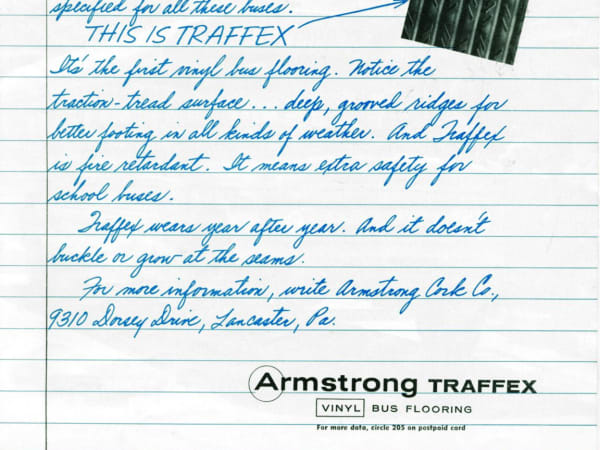 specified for all these buses.
THIS IS TRAFFEX
It's the first vinyl bus flooring. Notice the
traction-tread surface... deep, grooved ridges for
better footing in all kinds of weather. And Traffex
is fire retardant. It means extra safety for
school buses.
Traffex wears year after year. And it doesn't
buckle or grow at the seams.
For more information, write Armstrong Cork Co.,
9310 Dorsey Drive, Lancaster, Pa.
Armstrong TRAFFEX
VINYL BUS FLOORING
For more data, circle 205 on postpaid card